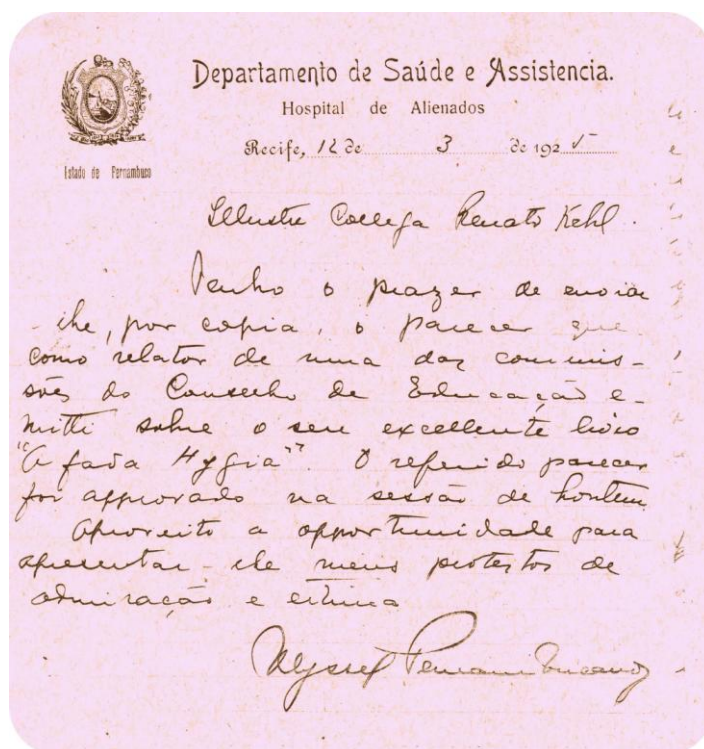 Departamento de Saúde e Assistencia.
Hospital de Alienados
Recife, 12 de 3 de 1925
Estado de Pernambuco
Illustre Collega Renato Kehl.
Tenho o prazer de enviar
-lhe, por copia, o parecer que
como relator de uma das commis-
sões do Conselho de Educação e-
mitti sobre o seu excellente livro
"A fada Hygia". O referido parecer
foi approvado na sessão de hontem
Aproveito a opportunidade para
apresentar-lhe meus protestos de
admiração e estima
Ulysses Pernambucano